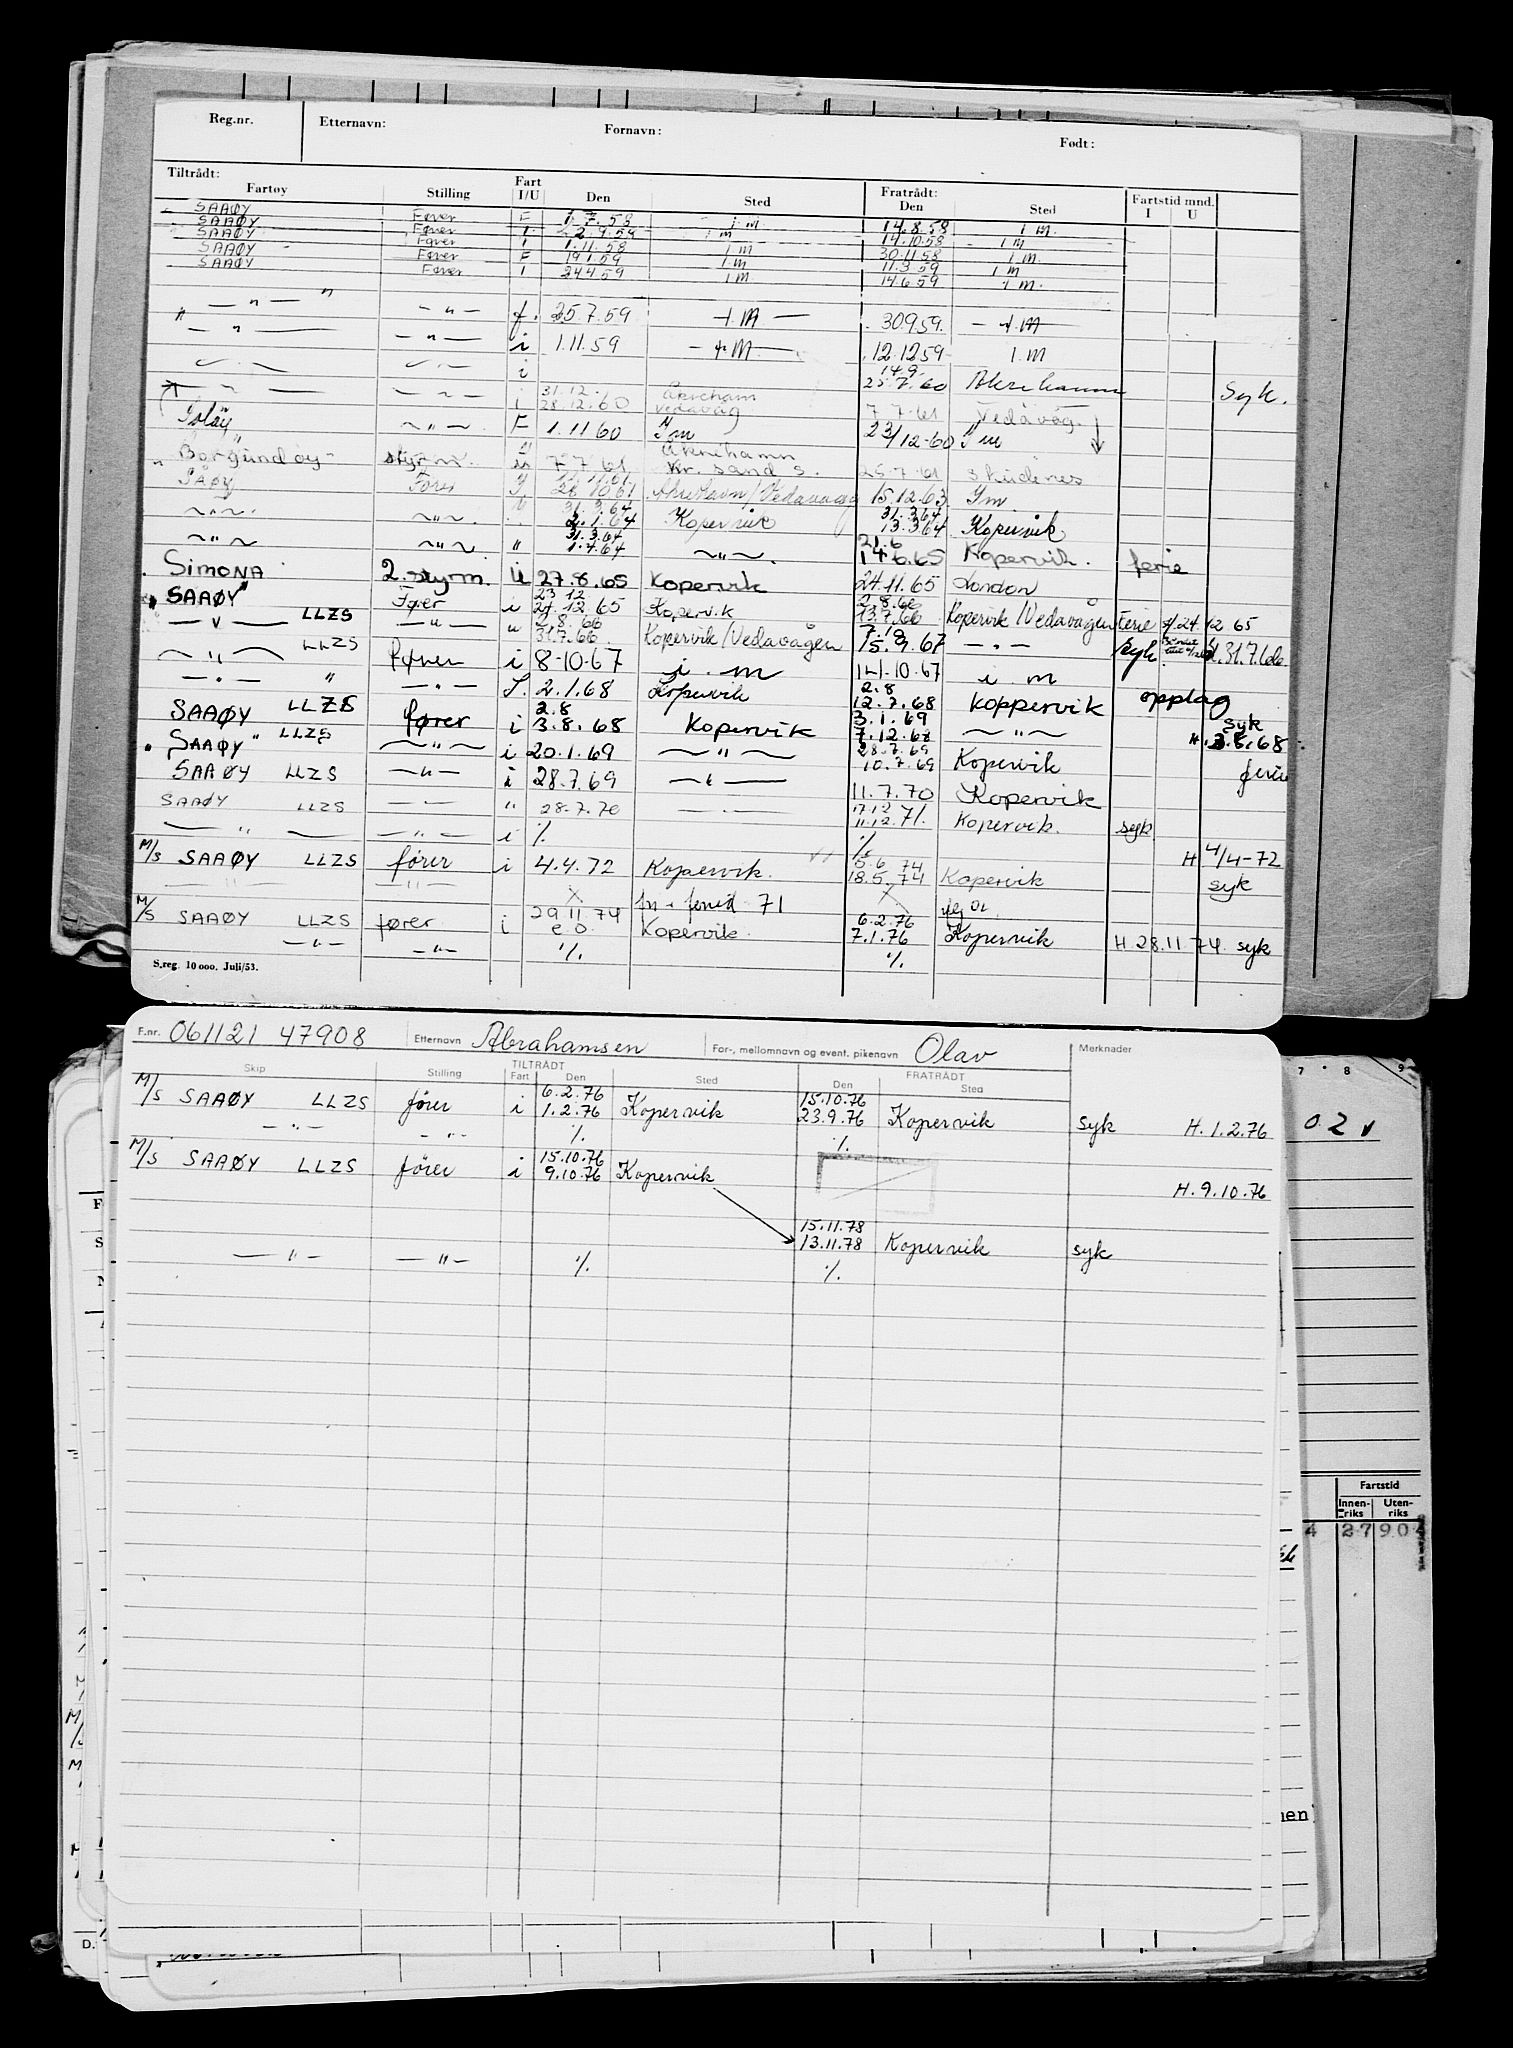 Reg.nr. Etternavn: Fornavn: Født:
Tiltrådt: Fratrådt: Fartstid mnd.
Fartøy Stilling Fart I/U Den Sted Den Sted I U
SAAØY Fører F 1.7.58 i m 14.8.58 i m.
SAAØY Fører 2.9.58 i m 14.10.58 i m
SAAØY Fører i 1.11.58 i m 30.11.58 i m.
SAAØY Fører F 19.1.59 i m 11.3.59 i m
SAAØY Fører i 24.4.59 i m 14.6.59 i m.
— " — " — " — f. 25.7.59 — i. M — 30959. — i. M
" — " — — " — i 1.11.59 — i M — 12.1259 i. M
i 14.9.
25.7.60 Åkrehamn Syk.
31.12. Åkreham
i 28.12.60 Vedavåg 7.7.61 Vedavåg.
~ " ~ F 1.11 60 I m 23/12-60 I m
Åkrehamn
Borgundøy styrm. 7.7.61 Kr. sand s. 25.7.61 Skudenes
Såøy Fører 28 10 61 Åkrehavn/Vedavågen 15.12.63 I m.
31.3.64 31.3.64
~ " ~ ~ " ~ 2.1.64 Kopervik 13.3.64 Kopervik.
31.3.64 21.6
~ " ~ ~ " ~ " 1.4.64 ~ " ~ 14.6.65 Kopervik. ferie
SIMONA 2. styrm. U 27.8.65 Kopervik 24.11.65 London
23 12 2.8.66
SAAØY Fører i 24.12.65 Kopervik 13.7.66 Kopervik/Vedavågen ferie 24.12 65
2.8.66
— " — LLZS — " — " 31.7.66 Kopervik/Vedavågen 15.9.67 — " — syk 31.7.66
— " — LLZS fører i 8-10-67 i. m 14.10.67 i. m
— " — " — " — I. 2.1.68 Kopervik 2.8
12.7.68 Koppervik opplag
2.8 3.1.69 syk
SAAØY LLZS fører i 3.8.68 Kopervik 7.12.68 ~ " ~ H. 3.8.68
SAAØY " LLZS ~ " ~ i 20.1.69 ~ " ~ 28.7.69
10.7.69 Kopervik ferie
SAAØY LLZS — " — i 28.7.69 — " — 11.7.70 Kopervik
SAAØY LLZS — " — " 28.7.70 — " — 17.12
11.12.71. Kopervik. syk
— " — — " — i % %
M/S SAAØY LLZS fører i 4.4.72 Kopervik. 18.5.74 Kopervik H 4/4-72
— " — — " — syk
29 11 74 6.2.76
M/S SAAØY LLZS fører i Kopervik. 7.1.76 Kopervik H. 28.11 74. syk
— " — — " — % %
S.reg. 10 000. Juli/53.
F.nr. 061121 47908 Etternavn Abrahamsen For-, mellomnavn og event. pikenavn Olav Merknader
TILTRÅDT FRATRÅDT
Skip Stilling Fart Den Sted Den Sted
6.2.76 15.10.76
M/S SAAØY LLZS fører i 1.2.76 Kopervik 23.9.76 Kopervik syk H. 1.2.76
— " — — " — % %
15.10.76
M/S SAAØY LLZS fører i 9.10.76 Kopervik H. 9.10.76
15.11.78
13.11.78 Kopervik syk
— " — — " — % %
7 8 9
0 2 v
Fartstid
Innen-riks Uten-riks
4 27 904
nen
D.